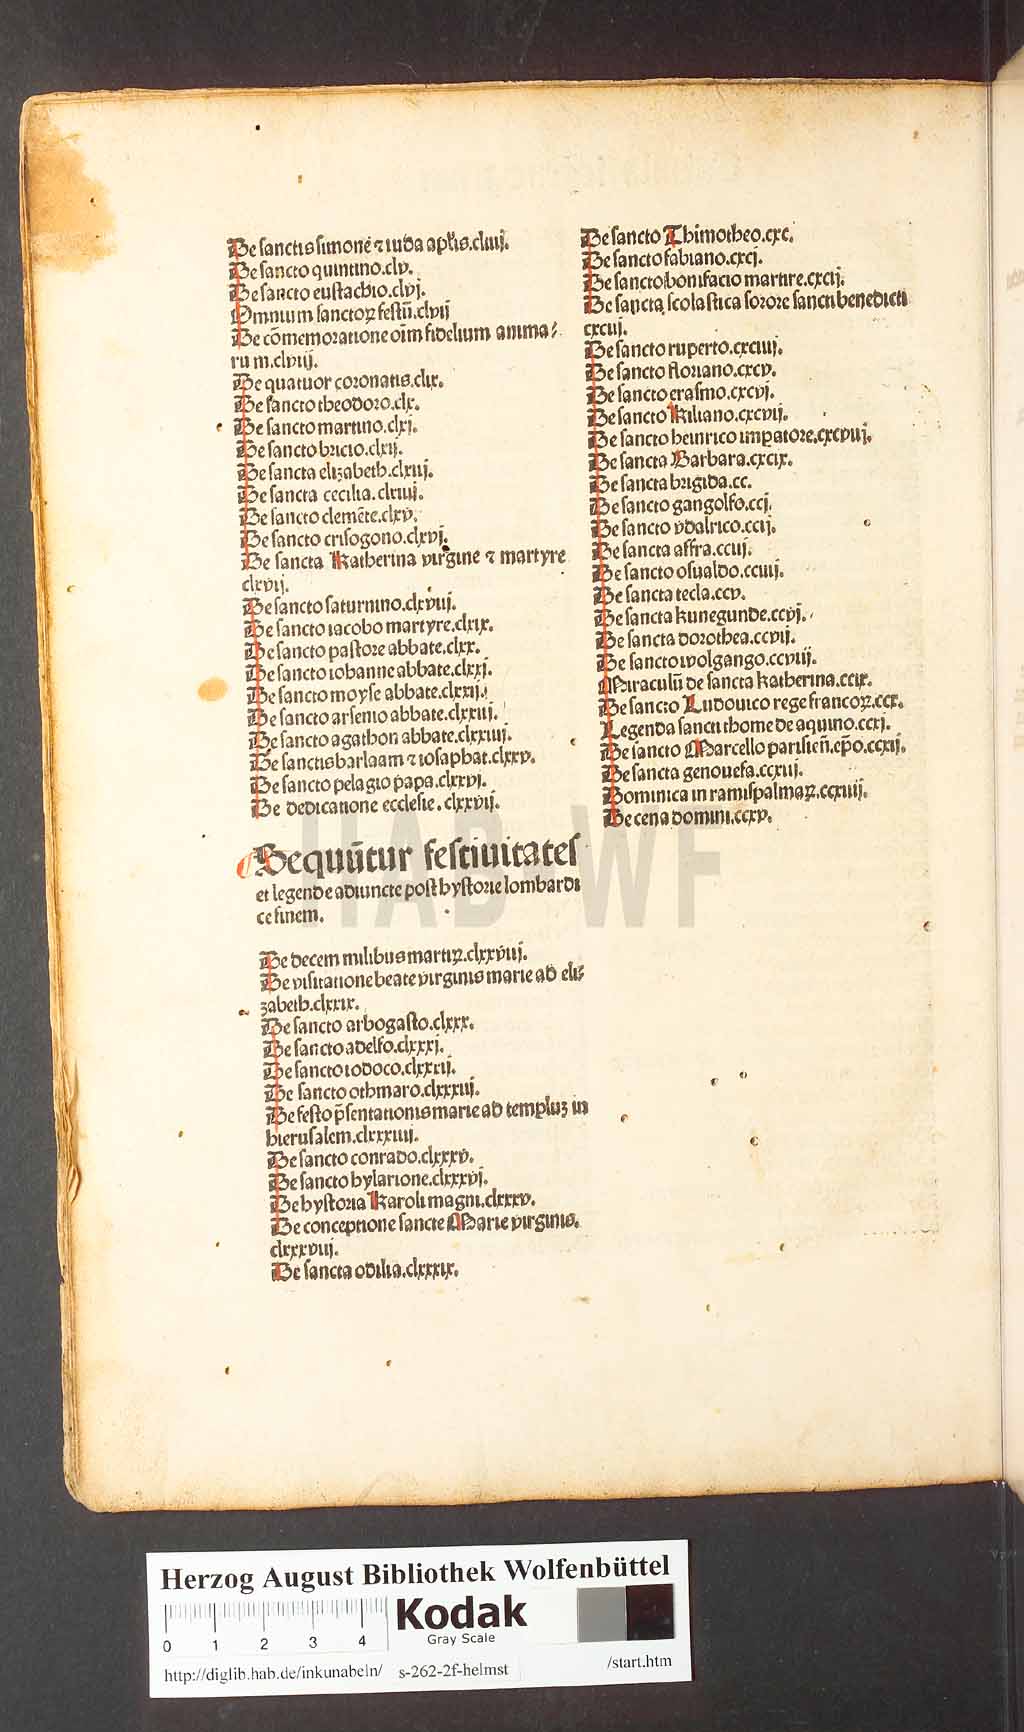 De sanctis simone ⁊ iuda apl̄is.cliiij.
De sancto quintino.clv.
De sancto eustachio.clvj.
Omnium sanctoꝝ festū.clvij
De cōmemoratione oīm fidelium anima⸗
rum.clviij.
De quatuor coronatis.clix.
De sancto theodoro.clx.
De sancto martino.clxj.
De sancto bricio.clxij.
De sancta elizabeth.clxiij.
De sancta cecilia.clxiiij.
De sancto clemēte.clxv.
De sancto crisogono.clxvj.
De sancta Katherina virgine ⁊ martyre
clxvij.
De sancto saturnino.clxviij.
De sancto iacobo martyre.clxix.
De sancto pastore abbate.clxx.
De sancto iohanne abbate.clxxj.
De sancto moyse abbate.clxxij.
De sancto arsenio abbate.clxxiij.
De sancto agathon abbate.clxxiiij.
De sanctis barlaam ⁊ iosaphat.clxxv.
De sancto pelagio papa.clxxvj.
De dedicatione ecclesie.clxxvij.
Sequūtur festiuitates
et legende adiuncte post hystorie lombardi
ce finem.
De decem milibus martiꝝ.clxxviij.
De visitatione beate virginis marie ad eli⸗
zabeth.clxxix.
De sancto arbogasto.clxxx.
De sancto adelfo.clxxxj.
De sancto iodoco.clxxxij.
De sancto othmaro.clxxxiij.
De festo p̄sentationis marie ad templuȝ in
hierusalem.clxxxiiij.
De sancto conrado.clxxxv.
De sancto hylarione.clxxxvj.
De hystoria Karoli magni.clxxxv.
De conceptione sancte Marie virginis.
clxxxviij.
De sancta odilia.clxxxix.
De sancto Thimotheo.cxc.
De sancto fabiano.cxcj.
De sancto bonifacio martire.cxcij.
De sancta scolastica sorore sancti benedicti
cxciij.
De sancto ruperto.cxciiij.
De sancto floriano.cxcv.
De sancto erasmo.cxcvj.
De sancto Kiliano.cxcvij.
De sancto heinrico imperatore.cxcviij.
De sancta Barbara.cxcix.
De sancta brigida.cc.
De sancto gangolfo.ccj.
De sancto vdalrico.ccij.
De sancta affra.cciij.
De sancto osualdo.cciiij.
De sancta tecla.ccv.
De sancta kunegunde.ccvj.
De sancta dorothea.ccvij.
De sancto wolgango.ccviij.
Miraculū de sancta katherina.ccix.
De sancto Ludouico rege francoꝝ.ccx.
Legenda sancti thome de aquino.ccxj.
De sancto Marcello parisieñ.ep̄o.ccxij.
De sancta genouefa.ccxiij.
Dominica in ramispalmaꝝ.ccxiiij.
De cena domini.ccxv.
HAB WF
Herzog August Bibliothek Wolfenbüttel
Kodak
Gray Scale
0 1 2 3 4
http://diglib.hab.de/inkunabeln/ s-262-2f-helmst /start.htm